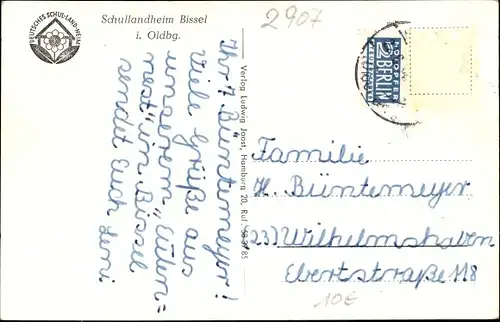 DEUTSCHES SCHUL-LAND-HEIM
Schullandheim Bissel
i. Oldbg.
2907
Ihr 7 Büntemeyer!
Viele Grüße aus
unserem „Eulen=
nest" in Bissel
sendet Euch
Verlag Ludwig Joost, Hamburg 20, Ruf
NOTOPFER
2 BERLIN
STEUERMARKE
Familie
H. Büntemeyer
(23) Wilhelmshaven
Ebertstraße 118
10€